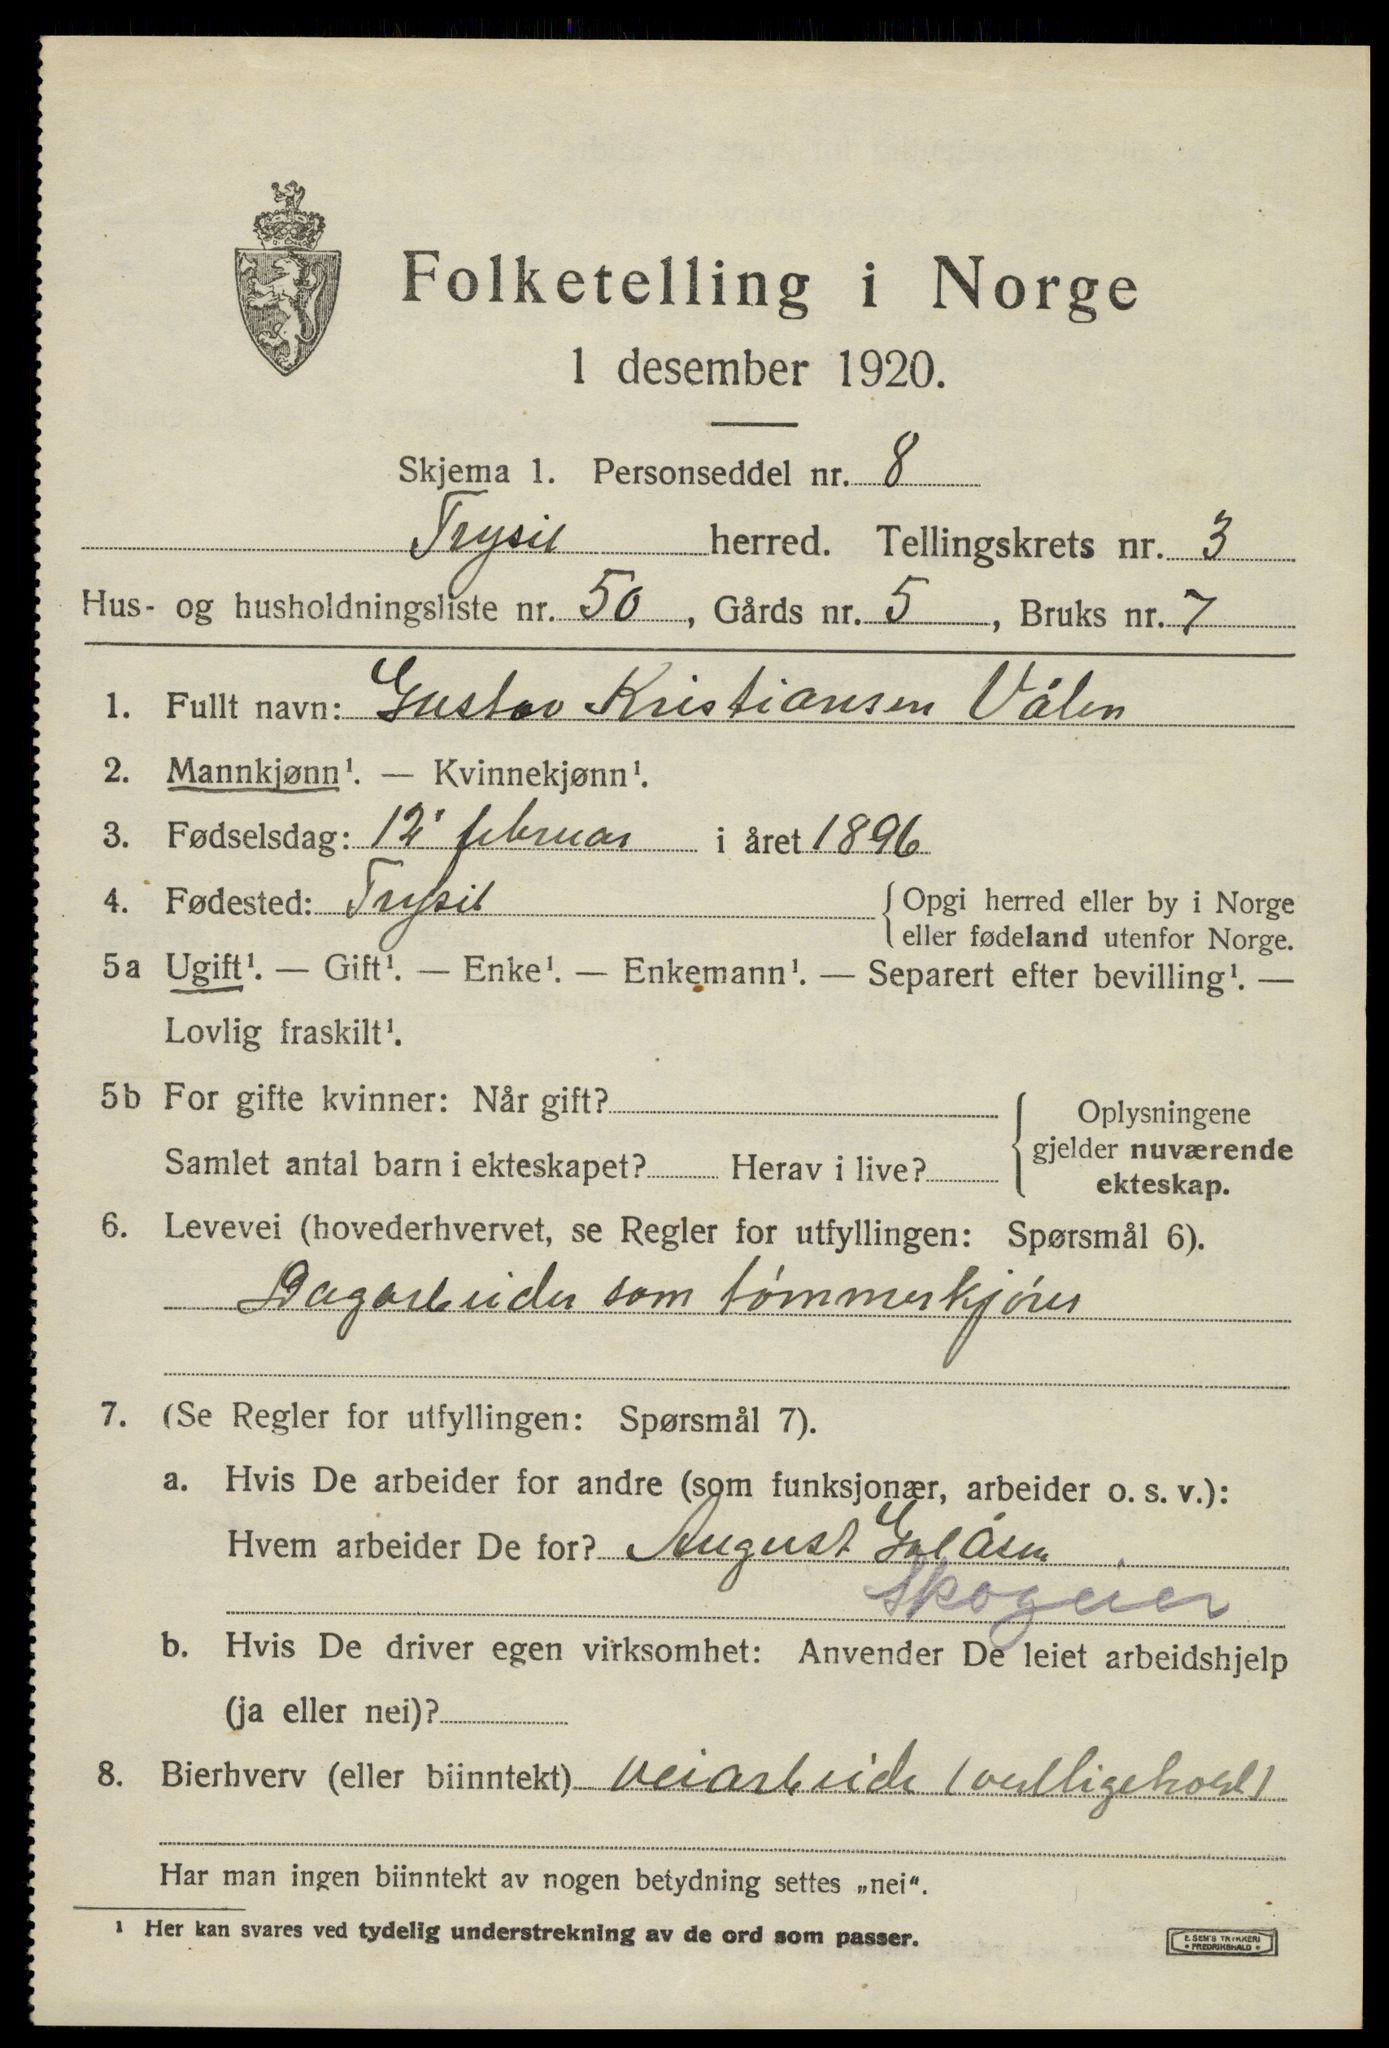 Folketelling i Norge
1 desember 1920.
Skjema 1. Personseddel nr. 8
Trysil herred. Tellingskrets nr. 3
Hus- og husholdningsliste nr. 50, Gårds nr. 5, Bruks nr. 7
1. Fullt navn: Gustav Kristiansen Vålen
2. Mannkjønn¹. — Kvinnekjønn¹.
3. Fødselsdag: 12' februar i året 1896
4. Fødested: Trysil { Opgi herred eller by i Norge
eller fødeland utenfor Norge.
5a Ugift¹. — Gift¹. — Enke¹. — Enkemann¹. — Separert efter bevilling¹. —
Lovlig fraskilt¹.
5b For gifte kvinner: Når gift?
Samlet antal barn i ekteskapet? Herav i live?
Oplysningene
gjelder nuværende
ekteskap.
6. Levevei (hovederhvervet, se Regler for utfyllingen: Spørsmål 6).
Dagarbeider som tømmerkjører
7. (Se Regler for utfyllingen: Spørsmål 7).
a. Hvis De arbeider for andre (som funksjonær, arbeider o. s. v.):
Hvem arbeider De for? August Galåsen
Skogeier
b. Hvis De driver egen virksomhet: Anvender De leiet arbeidshjelp
(ja eller nei)?
8. Bierhverv (eller biinntekt) veiarbeide (vedligehold)
Har man ingen biinntekt av nogen betydning settes „nei“.
¹ Her kan svares ved tydelig understrekning av de ord som passer.
E. SEM'S TRYKKERI
FREDRIKSHALD